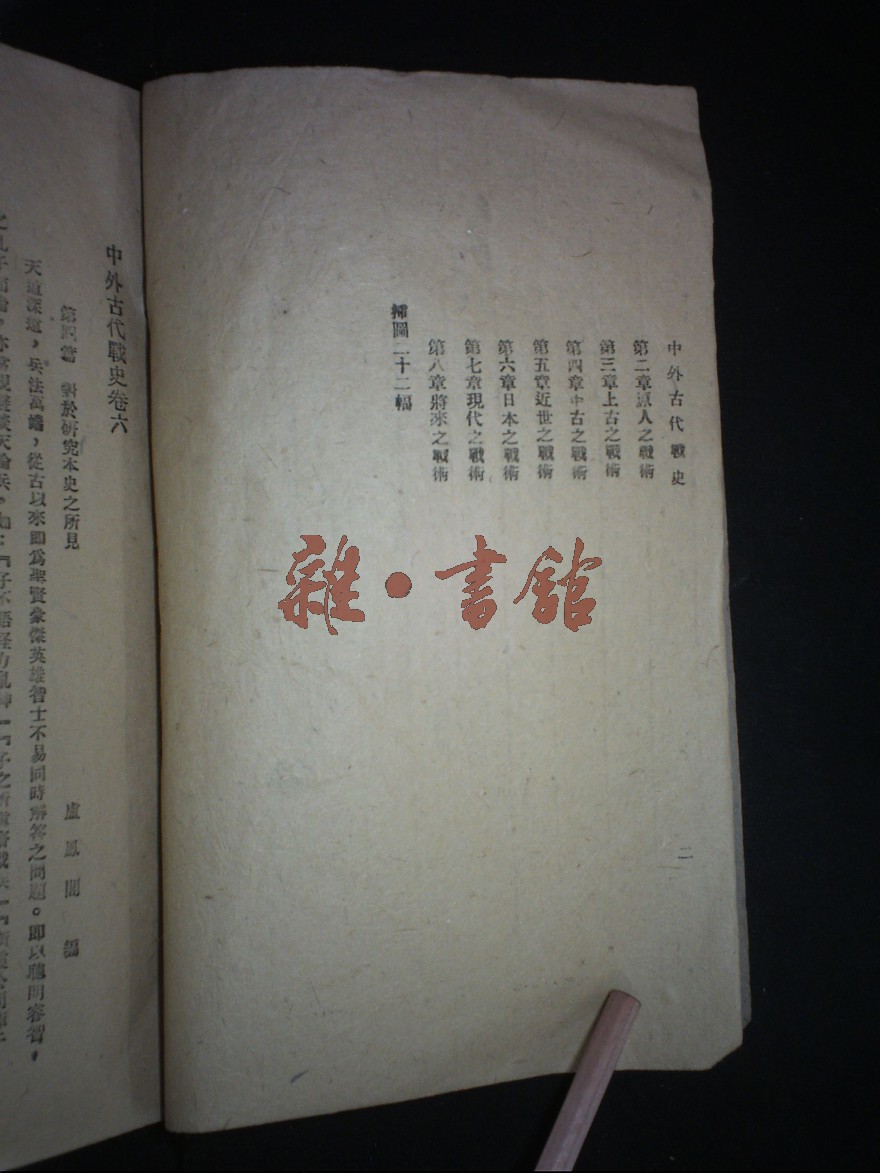 中外古代戰史
二
第二章原人之戰術
第三章上古之戰術
第四章中古之戰術
第五章近世之戰術
第六章日本之戰術
第七章現代之戰術
第八章將來之戰術
插圖二十二幅
雜·書館
中外古代戰史卷六
第四篇 對於研究本史之所見
盧鳳閣 編
天道深遠，兵法萬端，從古以來即爲聖賢豪傑英雄智士不易同時解答之問題。即以聰明睿智，